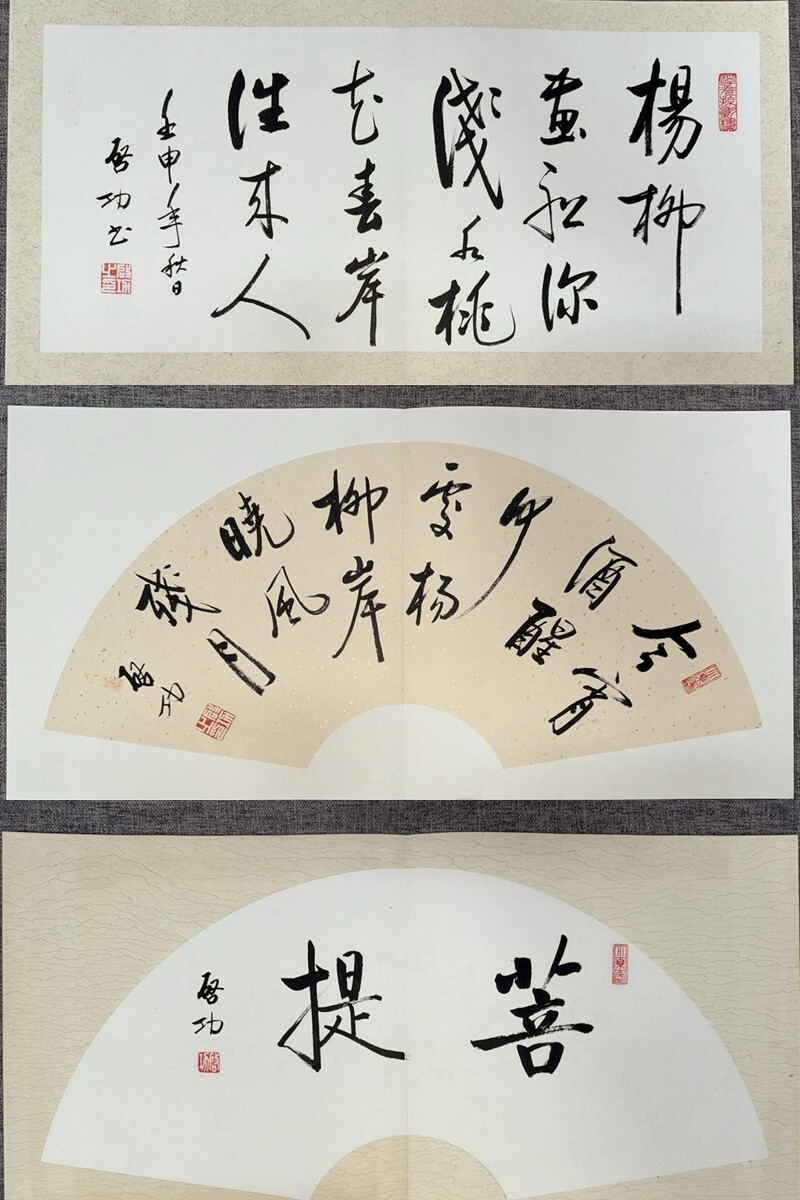 楊柳
畫船深
淺水桃
花春岸
往來人
壬申年秋日
啓功書
今宵
酒醒
何
處杨
柳岸
曉風
殘月
啓功
菩
提
啓功